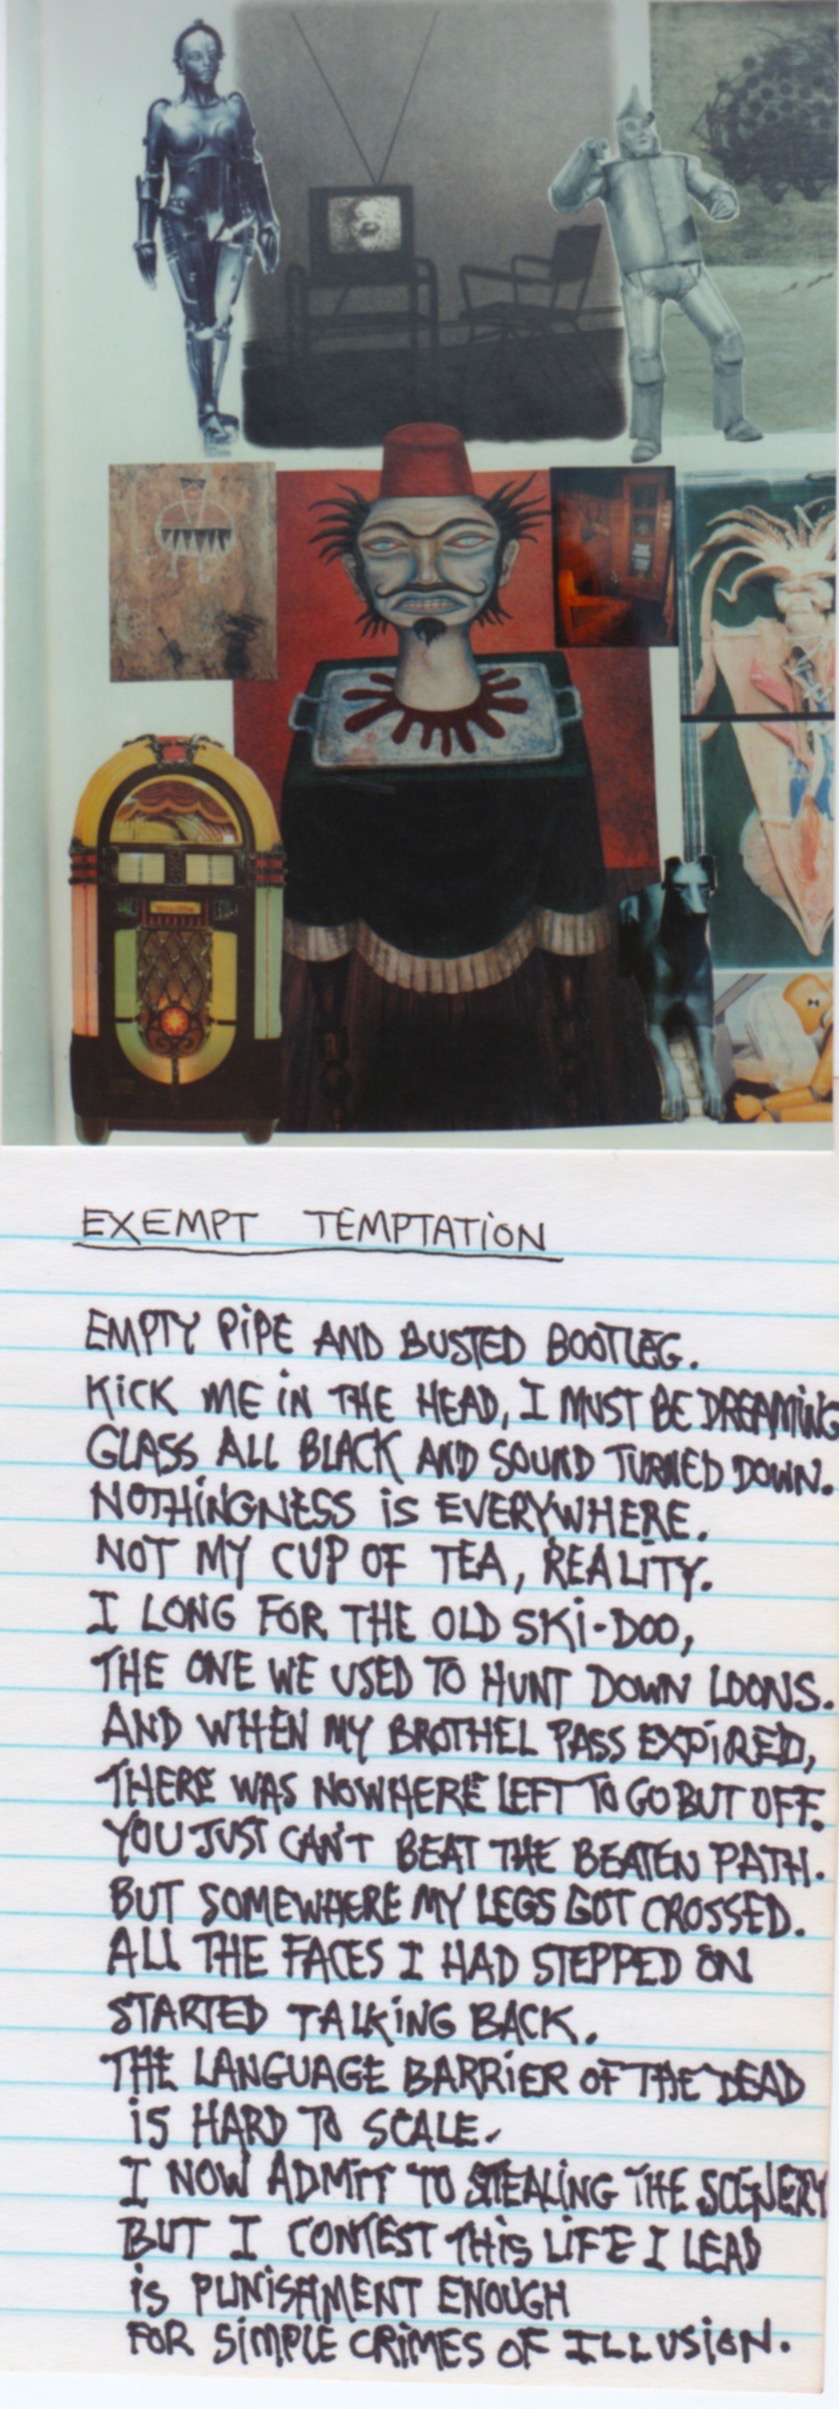 EXEMPT TEMPTATION
EMPTY PIPE AND BUSTED BOOTLEG.
KICK ME IN THE HEAD, I MUST BE DREAMING
GLASS ALL BLACK AND SOUND TURNED DOWN.
NOTHINGNESS IS EVERYWHERE.
NOT MY CUP OF TEA, REALITY.
I LONG FOR THE OLD SKI-DOO,
THE ONE WE USED TO HUNT DOWN LOONS.
AND WHEN MY BROTHEL PASS EXPIRED,
THERE WAS NOWHERE LEFT TO GO BUT OFF.
YOU JUST CAN'T BEAT THE BEATEN PATH.
BUT SOMEWHERE MY LEGS GOT CROSSED.
ALL THE FACES I HAD STEPPED ON
STARTED TALKING BACK.
THE LANGUAGE BARRIER OF THE DEAD
IS HARD TO SCALE.
I NOW ADMIT TO STEALING THE SCENERY
BUT I CONTEST THIS LIFE I LEAD
IS PUNISHMENT ENOUGH
FOR SIMPLE CRIMES OF ILLUSION.